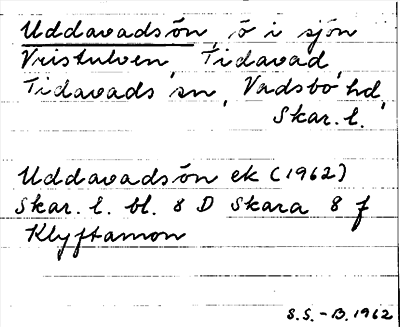 Uddavadsön, ö i sjön
Vristulven, Tidavad,
Tidavads sn, Vadsbo hd,
Skar. l.
Uddavadsön ek (1962)
Skar. l. bl. 8 D Skara 8 f
Klyftamon
S.S.-B. 1962